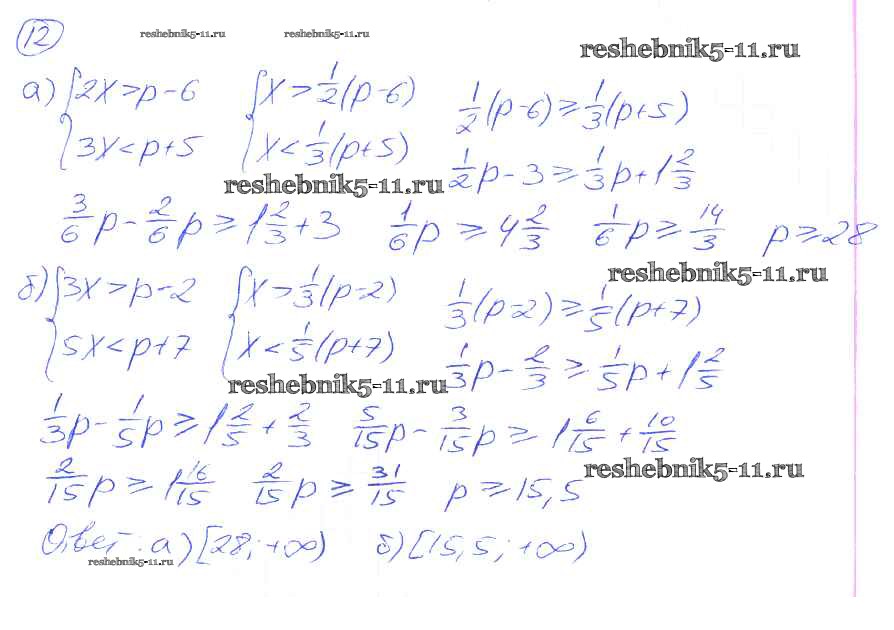 12 reshebnik5-11.ru reshebnik5-11.ru
reshebnik5-11.ru
а) {2x>p-6 {x>1/2(p-6) 1/2(p-6)≥1/3(p+5)
{3x<p+5 {x<1/3(p+5) 1/2p-3≥1/3p+1 2/3
reshebnik5-11.ru
3/6p-2/6p≥1 2/3+3 1/6p≥4 2/3 1/6p≥14/3 p≥28
reshebnik5-11.ru
б) {3x>p-2 {x>1/3(p-2) 1/3(p-2)≥1/5(p+7)
{5x<p+7 {x<1/5(p+7) 1/3p-2/3≥1/5p+1 2/5
reshebnik5-11.ru
1/3p-1/5p≥1 2/5+2/3 5/15p-3/15p≥1 6/15+10/15
reshebnik5-11.ru
2/15p≥1 16/15 2/15p≥31/15 p≥15,5
Ответ: а) [28; +∞) б) [15,5; +∞)
reshebnik5-11.ru